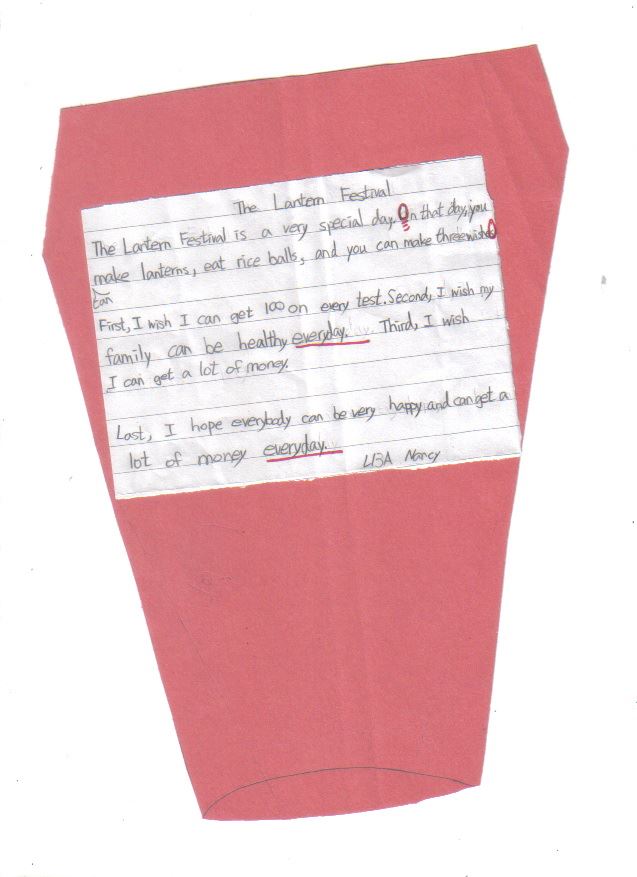 The Lantern Festival
The Lantern Festival is a very special day. On that day, you
make lanterns, eat rice balls, and you can make three wishes
can
First, I wish I can get 100 on every test. Second, I wish my
family can be healthy everyday. Third, I wish
I can get a lot of money.
Last, I hope everybody can be very happy and can get a
lot of money everyday. Nancy